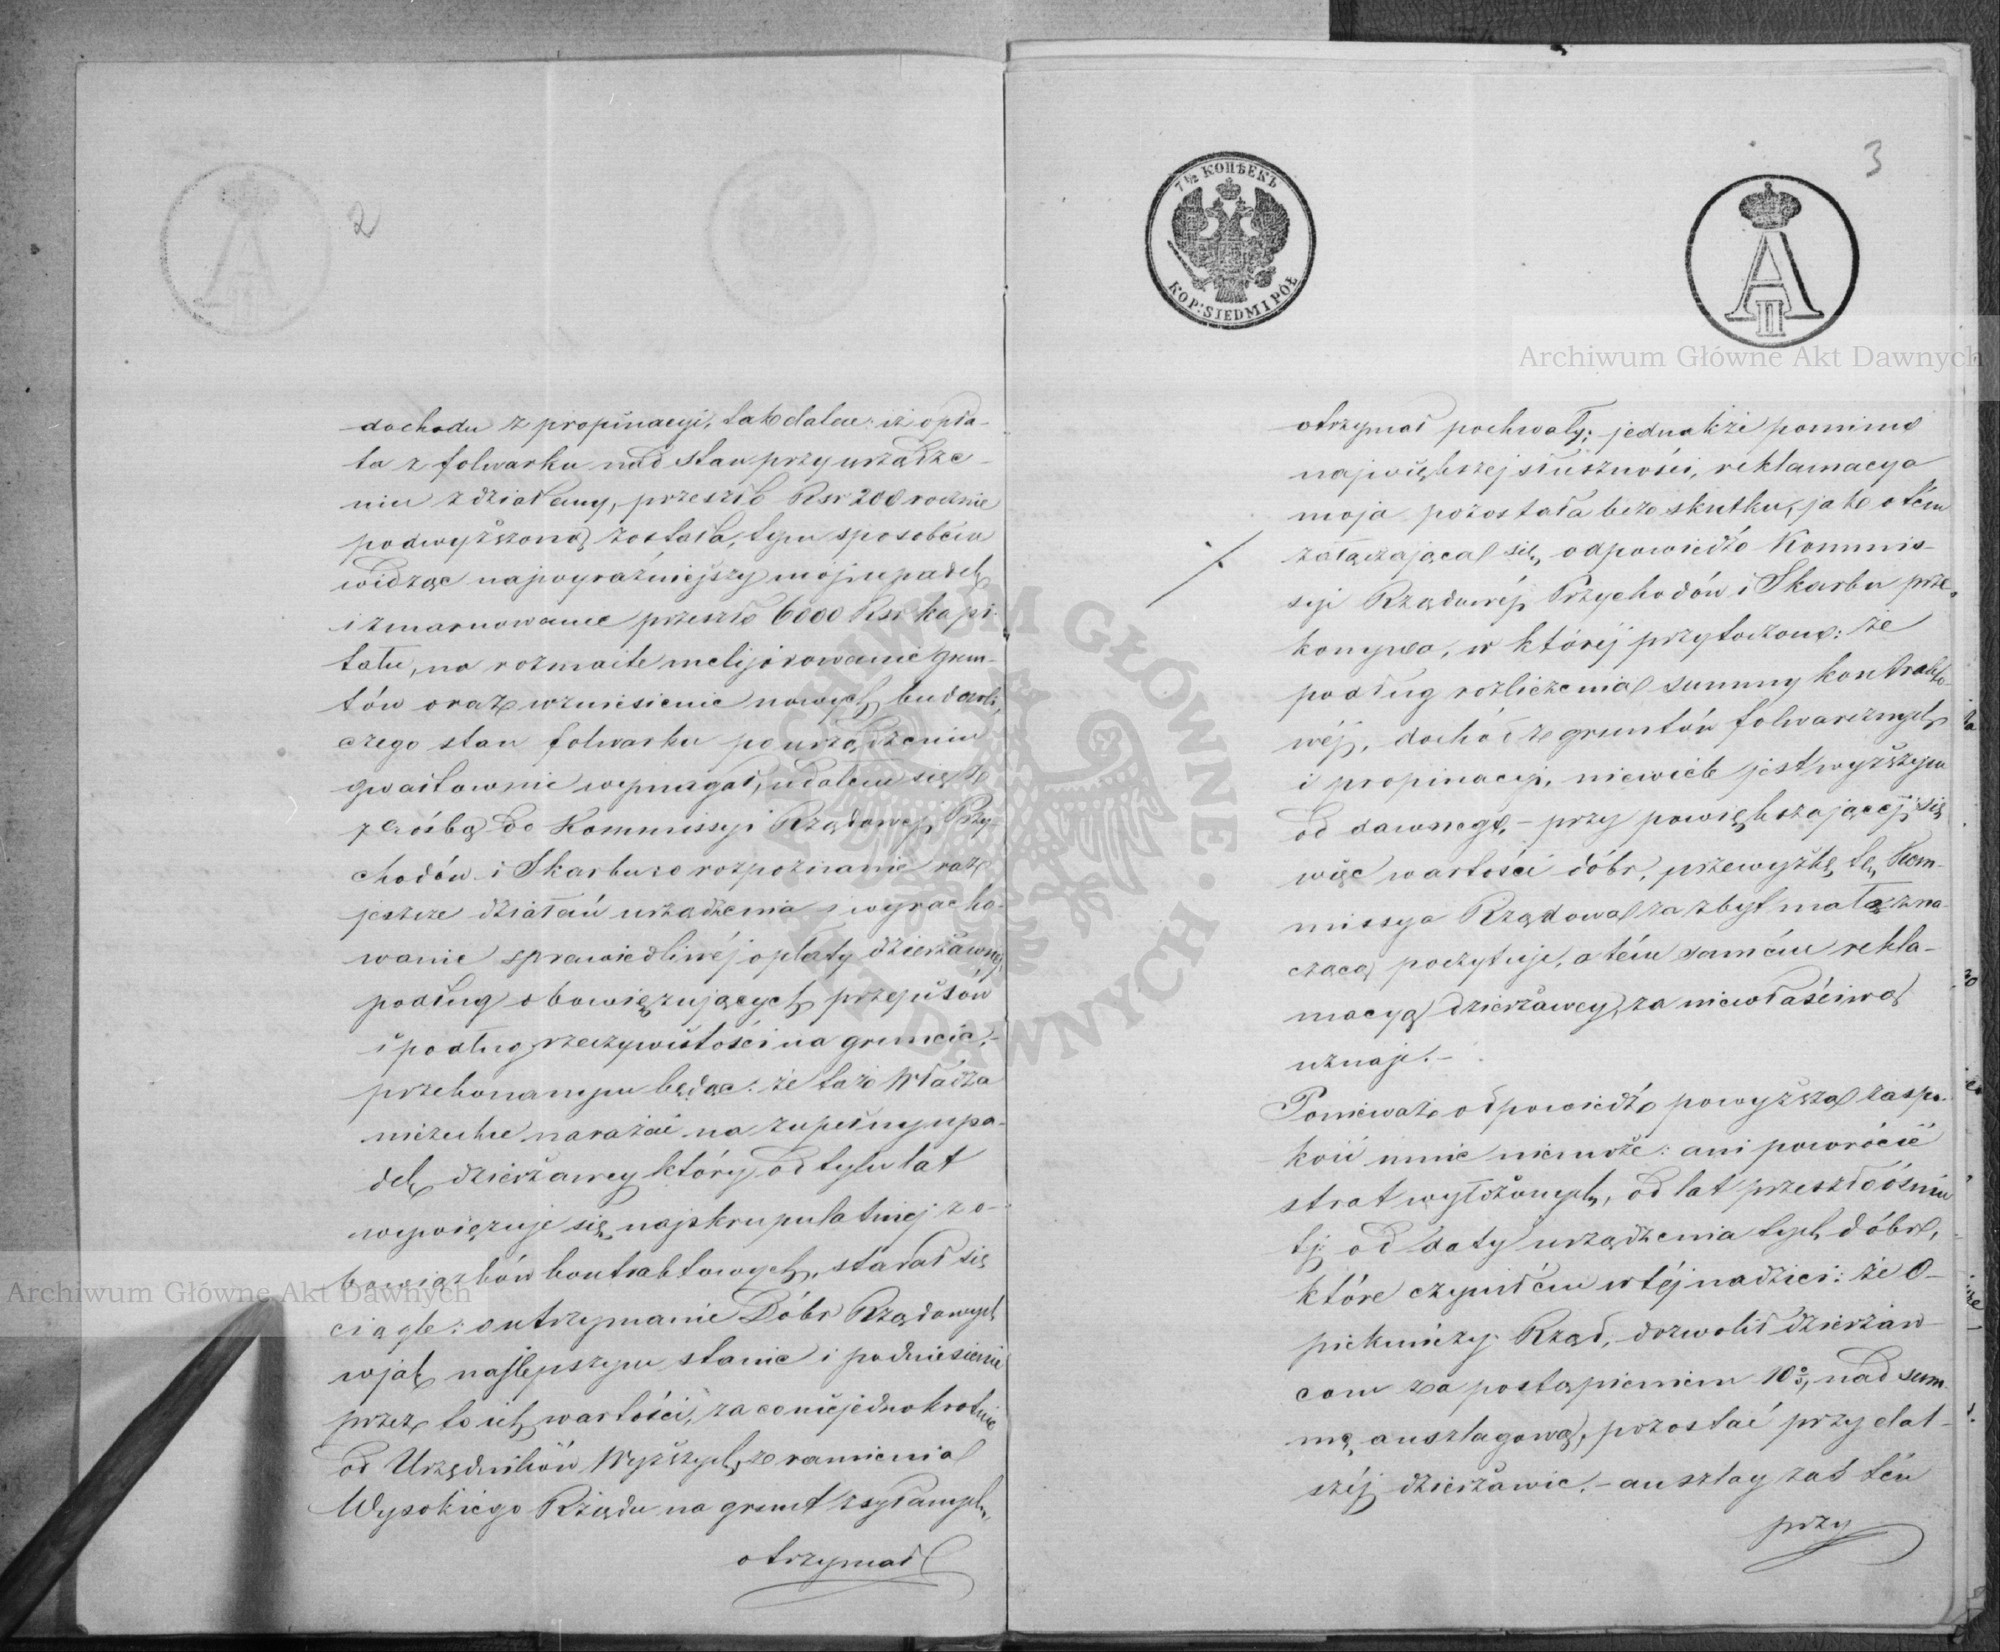 2
dochodu z propinacyi, tak dalece: iż opła-
ta z folwarku nad stan przy urządze-
niu zdziałany, przeszło Rsr 200 rocznie
podwyższoną została, tym sposobem
widząc najpograźniejszy mój upadek
i zmarnowanie przeszło 6000 Rsr kapi-
tału, na rozmaite meliorowanie grun-
tów oraz wzniesienie nowych budowli,
czego stan folwarku po urządzeniu
gwałtownie wymagał, udałem się z
prośbą do Kommissyi Rządowej Przy-
chodów i Skarbu o rozpoznanie raz
jeszcze działań urządzenia i wyracho-
wanie sprawiedliwéj opłaty dzierżawnej
podług obowiązujących przepisów
i podług rzeczywistości na gruncie,-
przekonanym będąc: że taż Władza
niezechce narażać na zupełny upa-
dek dzierżawcy który od tylu lat
wywięzuje się najskrupulatniej z o-
bowiązków kontraktowych, starał się
ciągle: o utrzymanie Dóbr Rządowych
w jak najlepszym stanie i podniesienie
przez to ich wartości, za co niejednokrotnie
od Urzędników Wyższych, z ramienia
Wysokiego Rządu na grunt zsyłanych,
otrzymał
3
7½ КОПѢЕКЪ
KOP: SIEDM I PÓŁ
A II
otrzymał pochwały; jednakże pomimo
największej słuszności, reklamacya
moja pozostała bez skutku, jak o tém
załączająca się odpowiedź Kommis-
syi Rządowéj Przychodów i Skarbu prze-
konywa, w któréj przytoczono: że
podług rozliczenia summy kontrakto-
wéj, dochód z gruntów folwarcznych
i propinacyi, niewiele jest wyższym
od dawnego, - przy powiększającéj się
więc wartości dóbr, przewyżkę tę Kom-
missya Rządowa za zbyt mało zna-
czącą poczytuje, a tém samém rekla-
macyą dzierżawcy za niewłaściwą
uznaje.-
Ponieważ odpowiedź powyższa zaspo-
koić mnie niemoże: ani powrócić
strat wyłożonych, od lat przeszło ośmiu
tj. od daty urządzenia tych dóbr,
które czyniłem w téj nadziei: że O-
piekuńczy Rząd, dozwolił dzierżaw-
com za postąpieniem 10%, nad sum-
mę anszlagową, pozostać przy dal-
széj dzierżawie.- anszlag zaś tén
przy
Archiwum Główne Akt Dawnych
Archiwum Główne Akt Dawnych
ARCHIWUM GŁÓWNE · AKT DAWNYCH ·